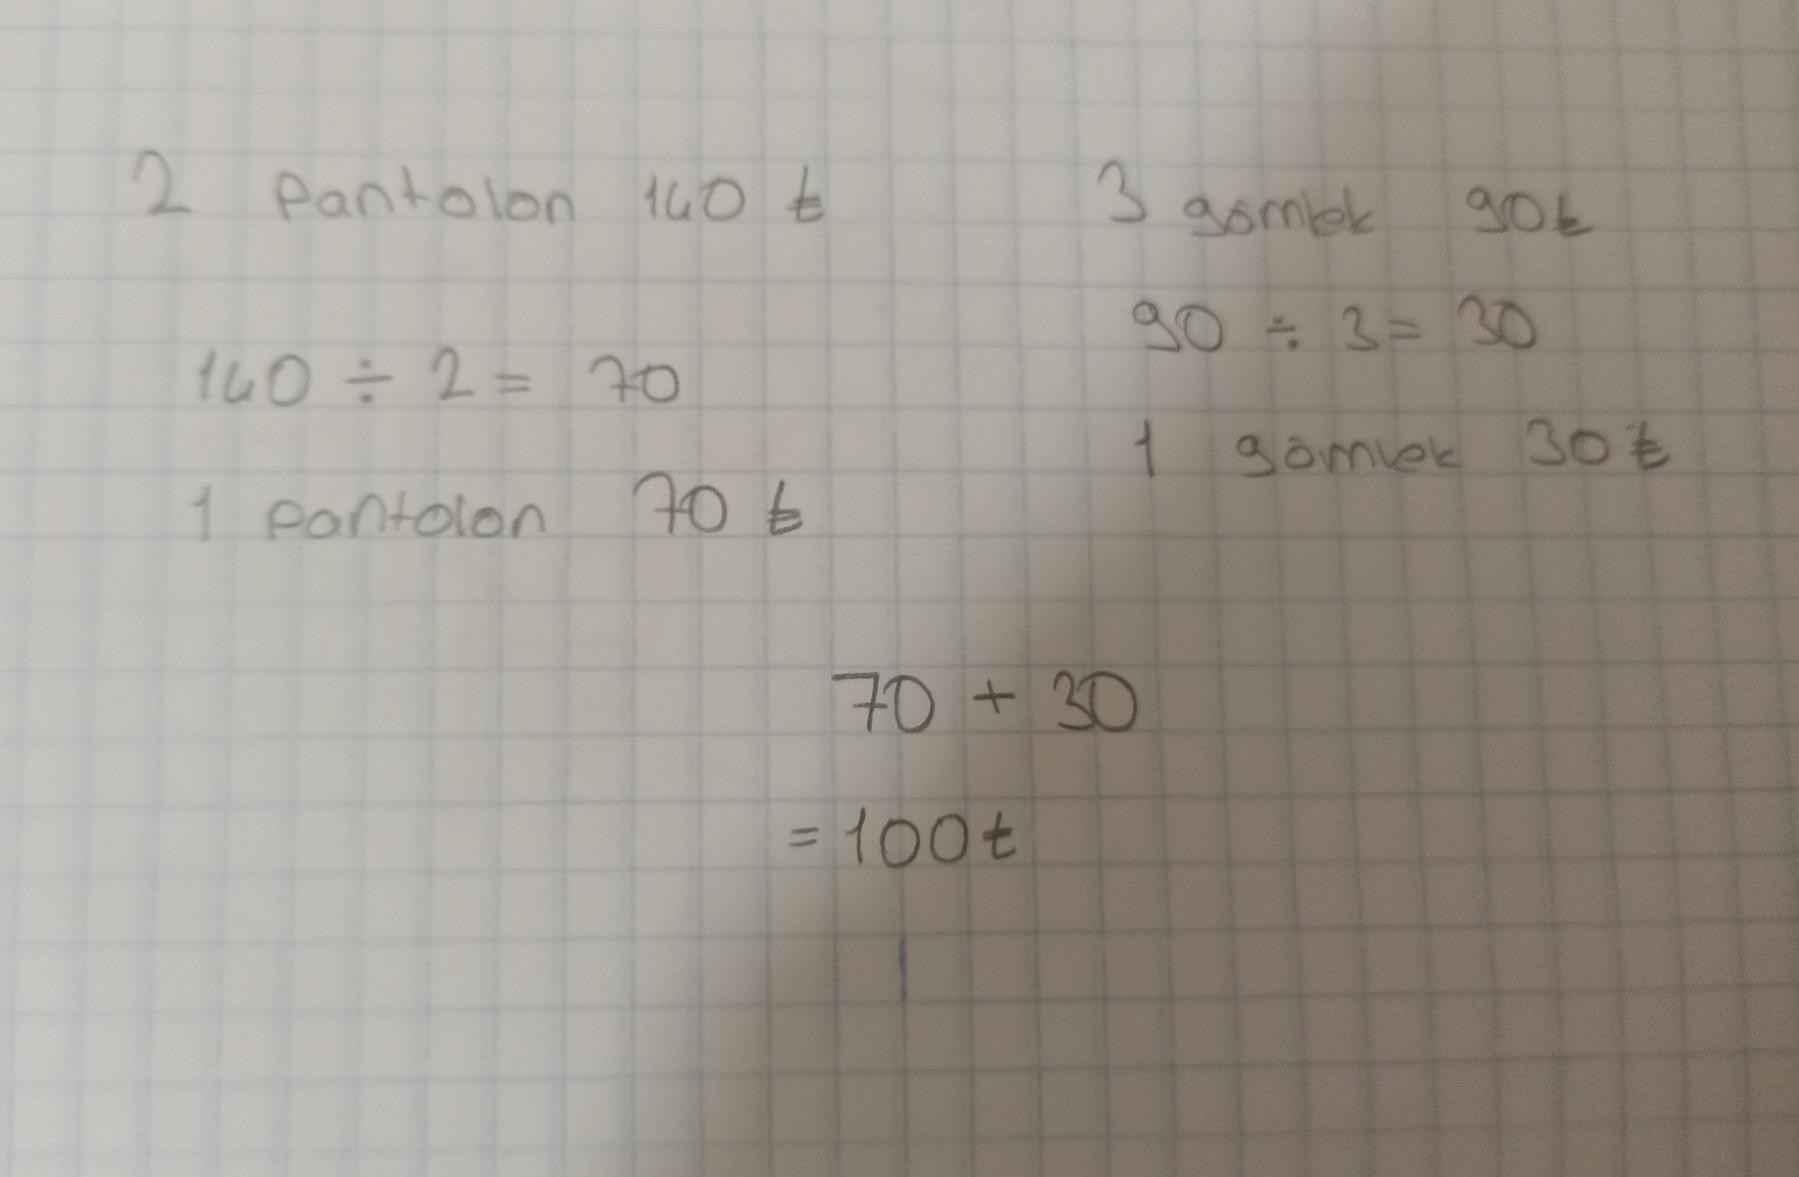 2 pantolon 140 ₺
140 ÷ 2 = 70
1 pantolon 70 ₺
3 gömlek 90₺
90 ÷ 3 = 30
1 gömlek 30₺
70 + 30
= 100₺